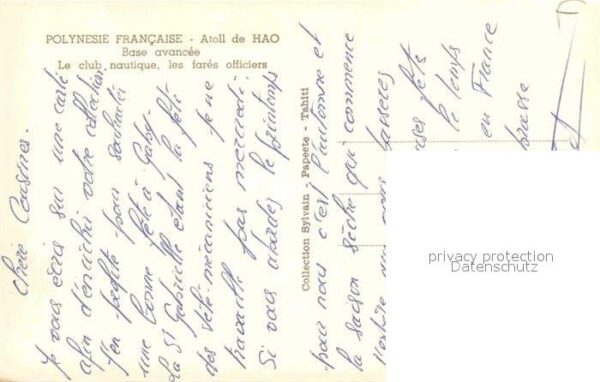 POLYNESIE FRANÇAISE - Atoll de HAO
Base avancée
Le club nautique, les farés officiers
Collection Sylvain - Papeete - Tahiti
Chère Cousines.
Je vous écris sur une carte
afin d'enrichir votre collection
J'en profite pour souhaiter
une bonne fête à Gaby-
La St Gabrielle étant la fête
des télé-mécaniciens je ne
travaille pas mercredi.
Si vous abordez le printemps
pour nous c'est l'automne et
la saison sèche qui commence
le temps
en France
privacy protection
Datenschutz